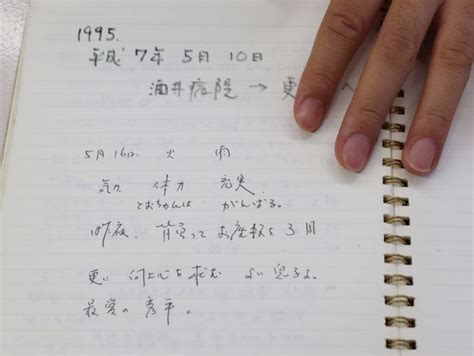 1995.
平成7年 5月 10日
酒井病院 → 更
5月16日 火
気力 体力 充実.
とおちゃんは がんばる。
昨夜、背負って お座敷を 3周
更に 向上心を 求む よい息子よ。
最愛の 秀平。